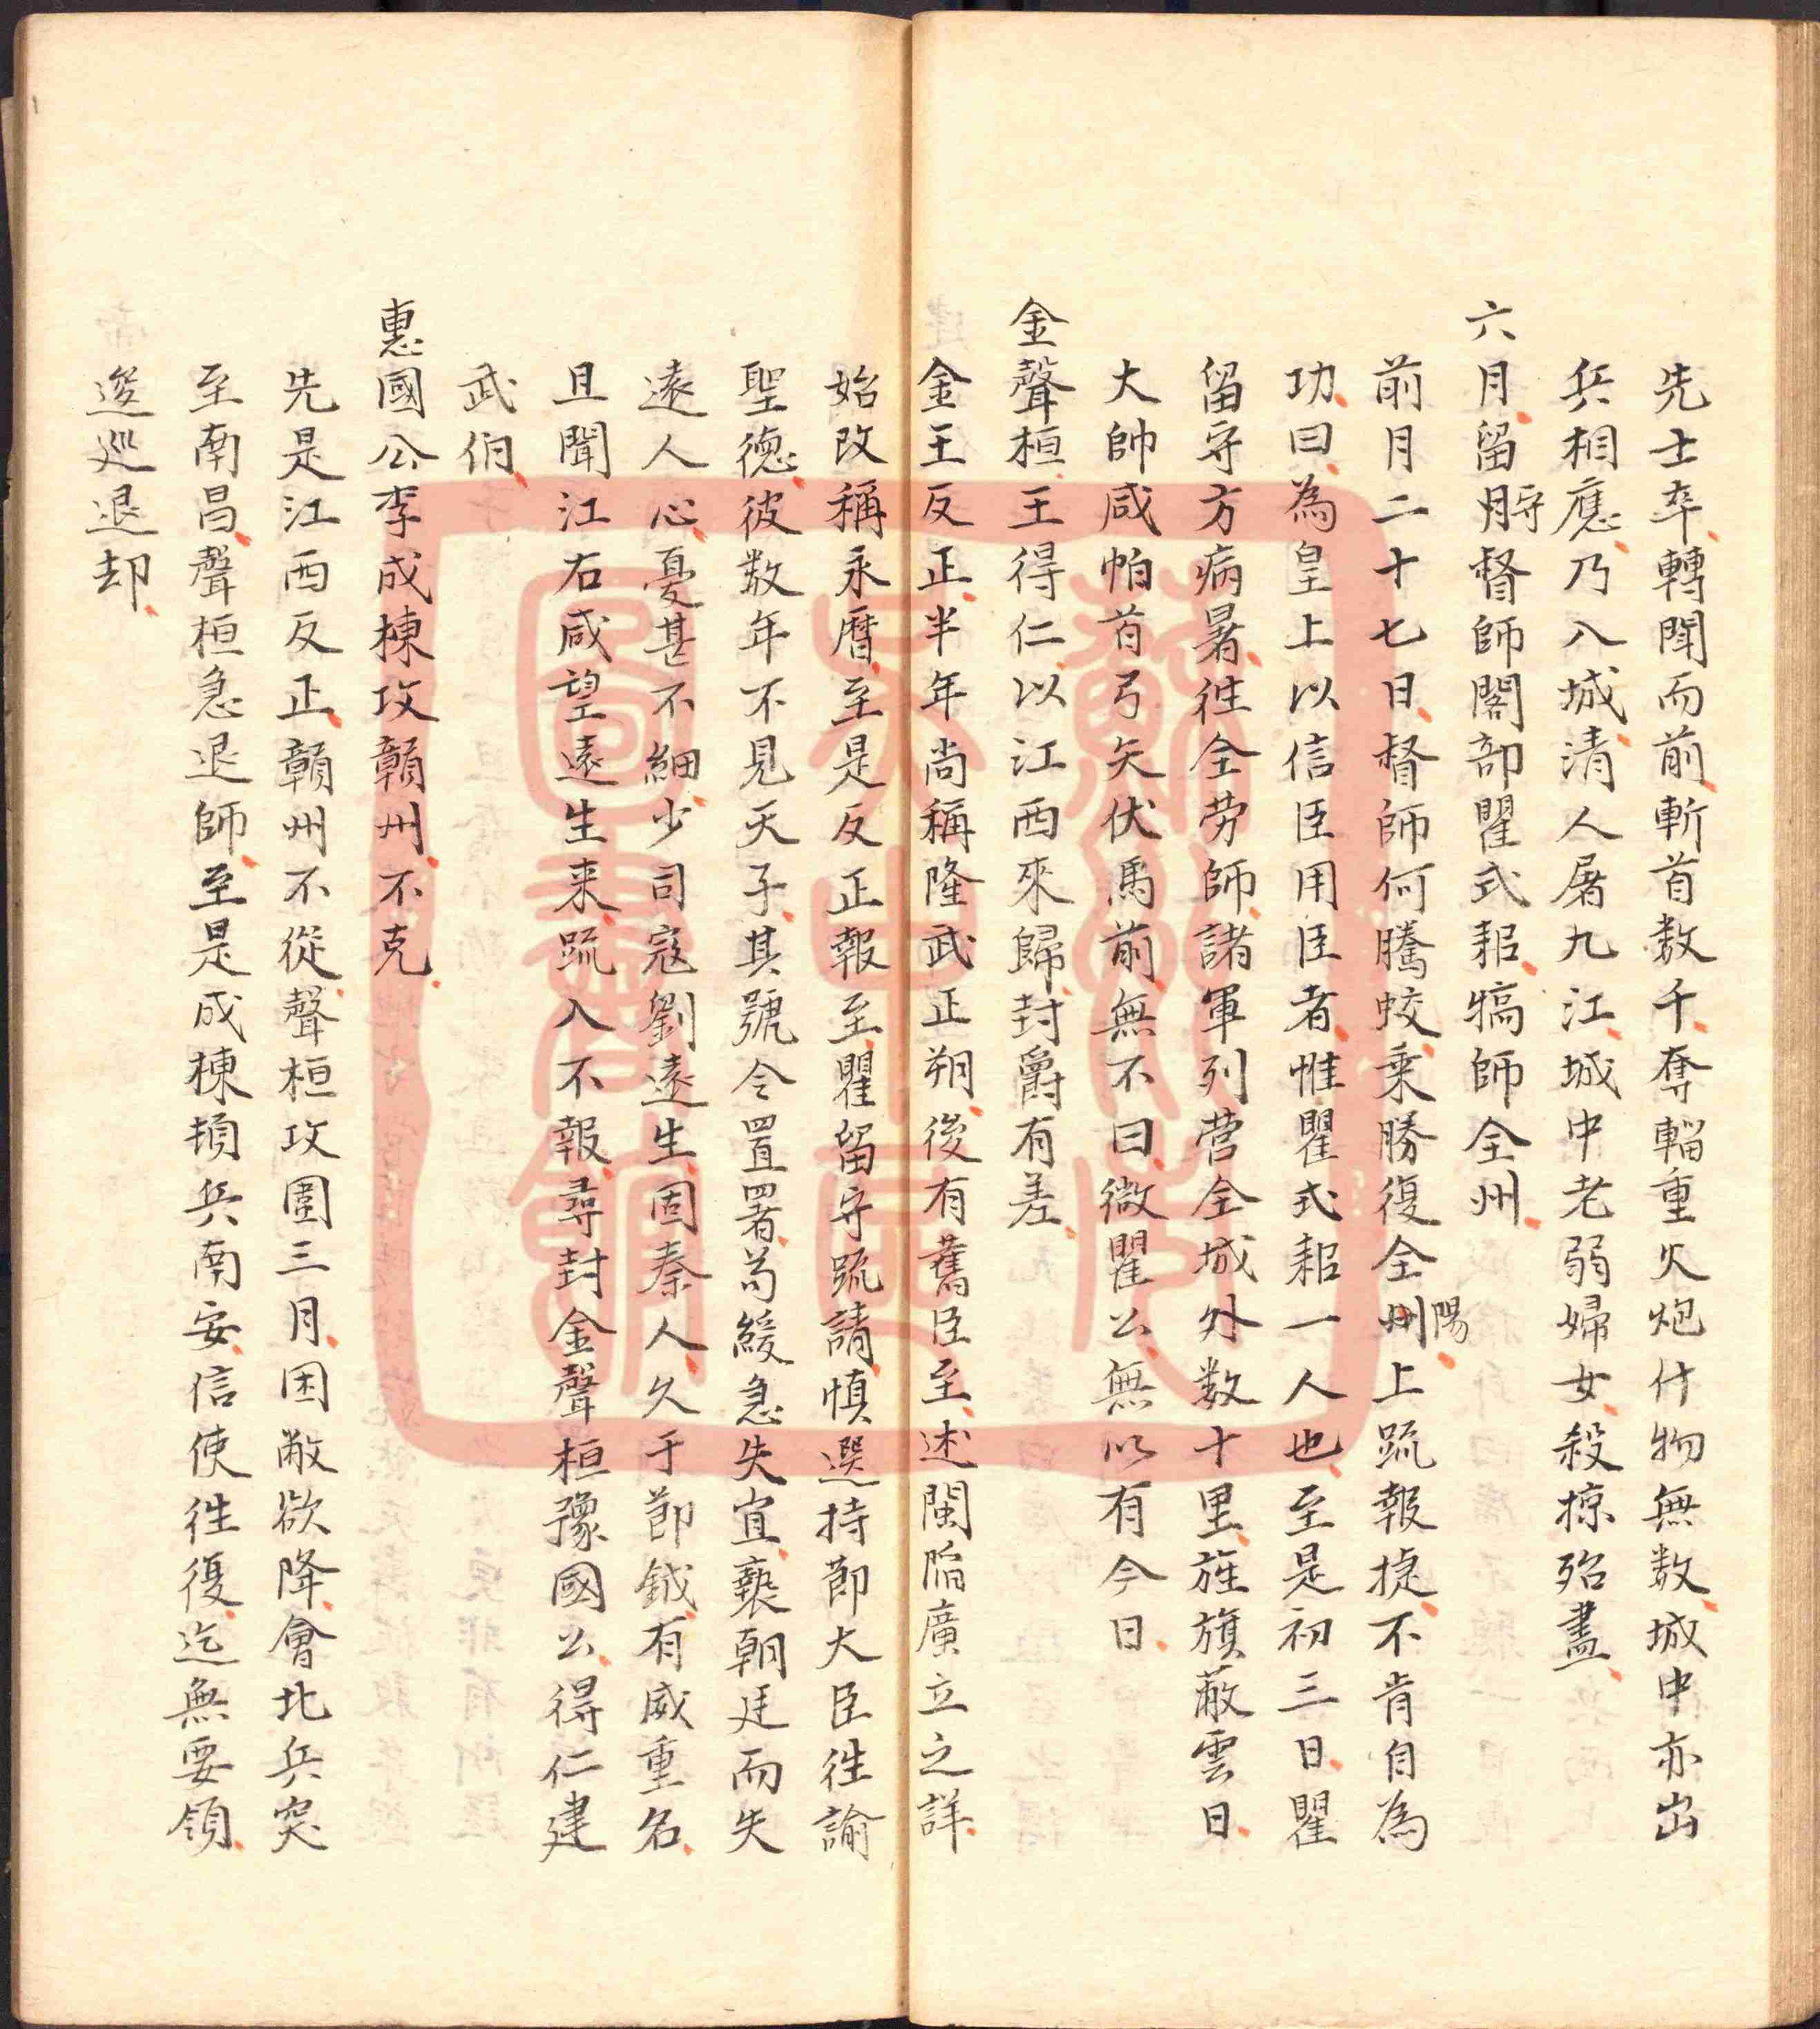 先士卒轉鬪而前斬首数千奪輜重火炮什物無数城中亦出
兵相應乃入城清人屠九江城中老弱婦女殺掠殆盡
六月留守督師閣部瞿式耜犒師全州
前月二十七日督師何騰蛟乘勝復全陽上疏報捷不肯自為
功曰為皇上以信臣用臣者惟瞿式耜一人也至是初三日瞿
留守方病暑徃全劳師諸軍列营全城外数十里旌旗蔽雲日
大帥咸帕首弓矢伏馬前無不曰微瞿公無以有今日
金聲桓王得仁以江西來歸封爵有差
金王反正半年尚稱隆武正朔後有舊臣至述閩陥廣立之詳
始改稱永曆至是反正報至瞿留守疏請慎選持節大臣徃諭
聖德彼数年不見天子其號令置署苟緩急失宜褻朝廷而失
遠人心憂甚不細少司寇劉遠生固秦人久于節鉞有威重名
且聞江右咸望遠生来疏入不報尋封金聲桓豫國公得仁建
武伯
惠國公李成棟攻贛州不克
先是江西反正贛州不從聲桓攻圍三月困敝欲降會北兵突
至南昌聲桓急退師至是成棟頓兵南安信使徃復迄無要領
逡巡退却